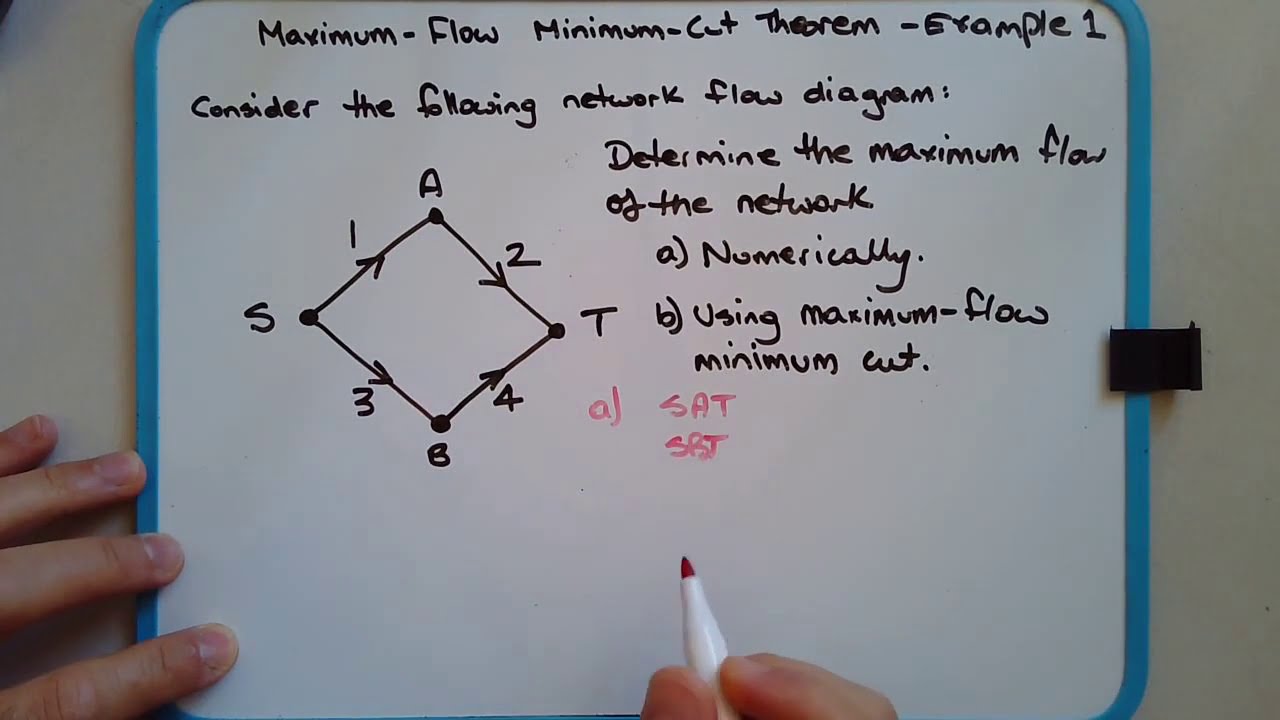 Maximum-Flow Minimum-Cut Theorem - Example 1
Consider the following network flow diagram:
Determine the maximum flow
of the network
a) Numerically.
b) Using maximum-flow
minimum cut.
A
1
2
S
T
3
4
B
a) SAT
SBT